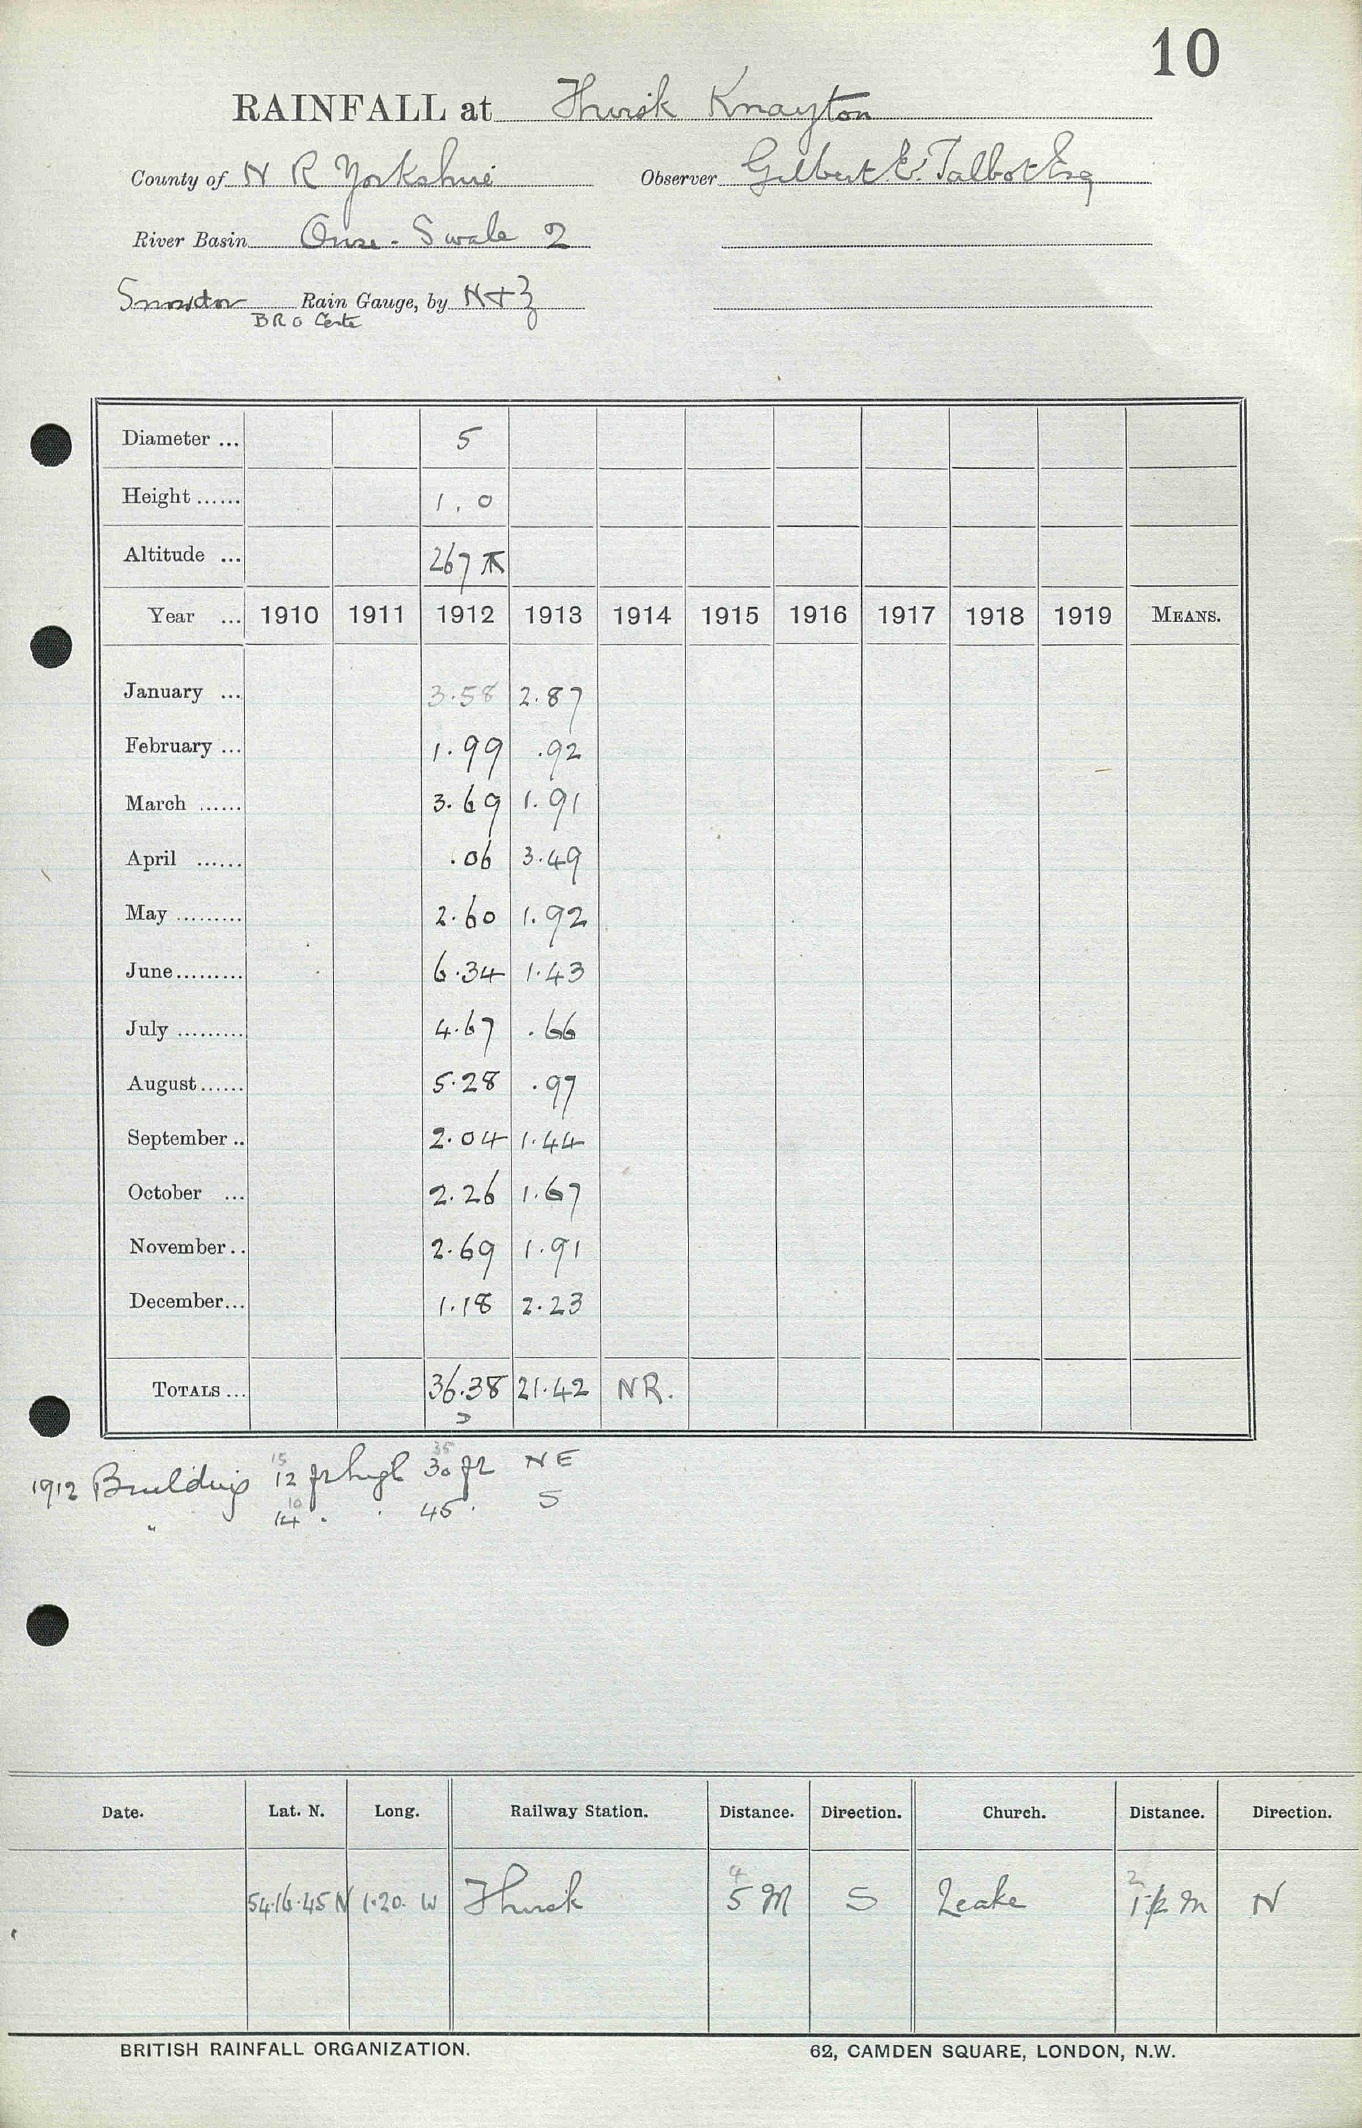 10
RAINFALL at Thirsk Knayton
County of N R Yorkshire Observer Gilbert E. Talbot Esq
River Basin Ouse - Swale 2
Snowdon Rain Gauge, by N & Z
BRO Certe
Diameter ... 5
Height ...... 1.0
Altitude ... 267
Year ... 1910 1911 1912 1913 1914 1915 1916 1917 1918 1919 MEANS.
January ... 3.58 2.87
February ... 1.99 .92
March ...... 3.69 1.91
April ...... .06 3.49
May ......... 2.60 1.92
June......... 6.34 1.43
July ......... 4.67 .66
August...... 5.28 .97
September .. 2.04 1.44
October ... 2.26 1.67
November.. 2.69 1.91
December... 1.18 2.23
TOTALS ... 36.38 21.42 NR.
15 35
1912 Building 12 ft high 30 ft NE
10
" 14 . . 45 . S
Date. Lat. N. Long. Railway Station. Distance. Direction. Church. Distance. Direction.
4 2
54.16.45 N 1.20. W Thirsk 5 M S Leake 1½ M N
BRITISH RAINFALL ORGANIZATION. 62, CAMDEN SQUARE, LONDON, N.W.